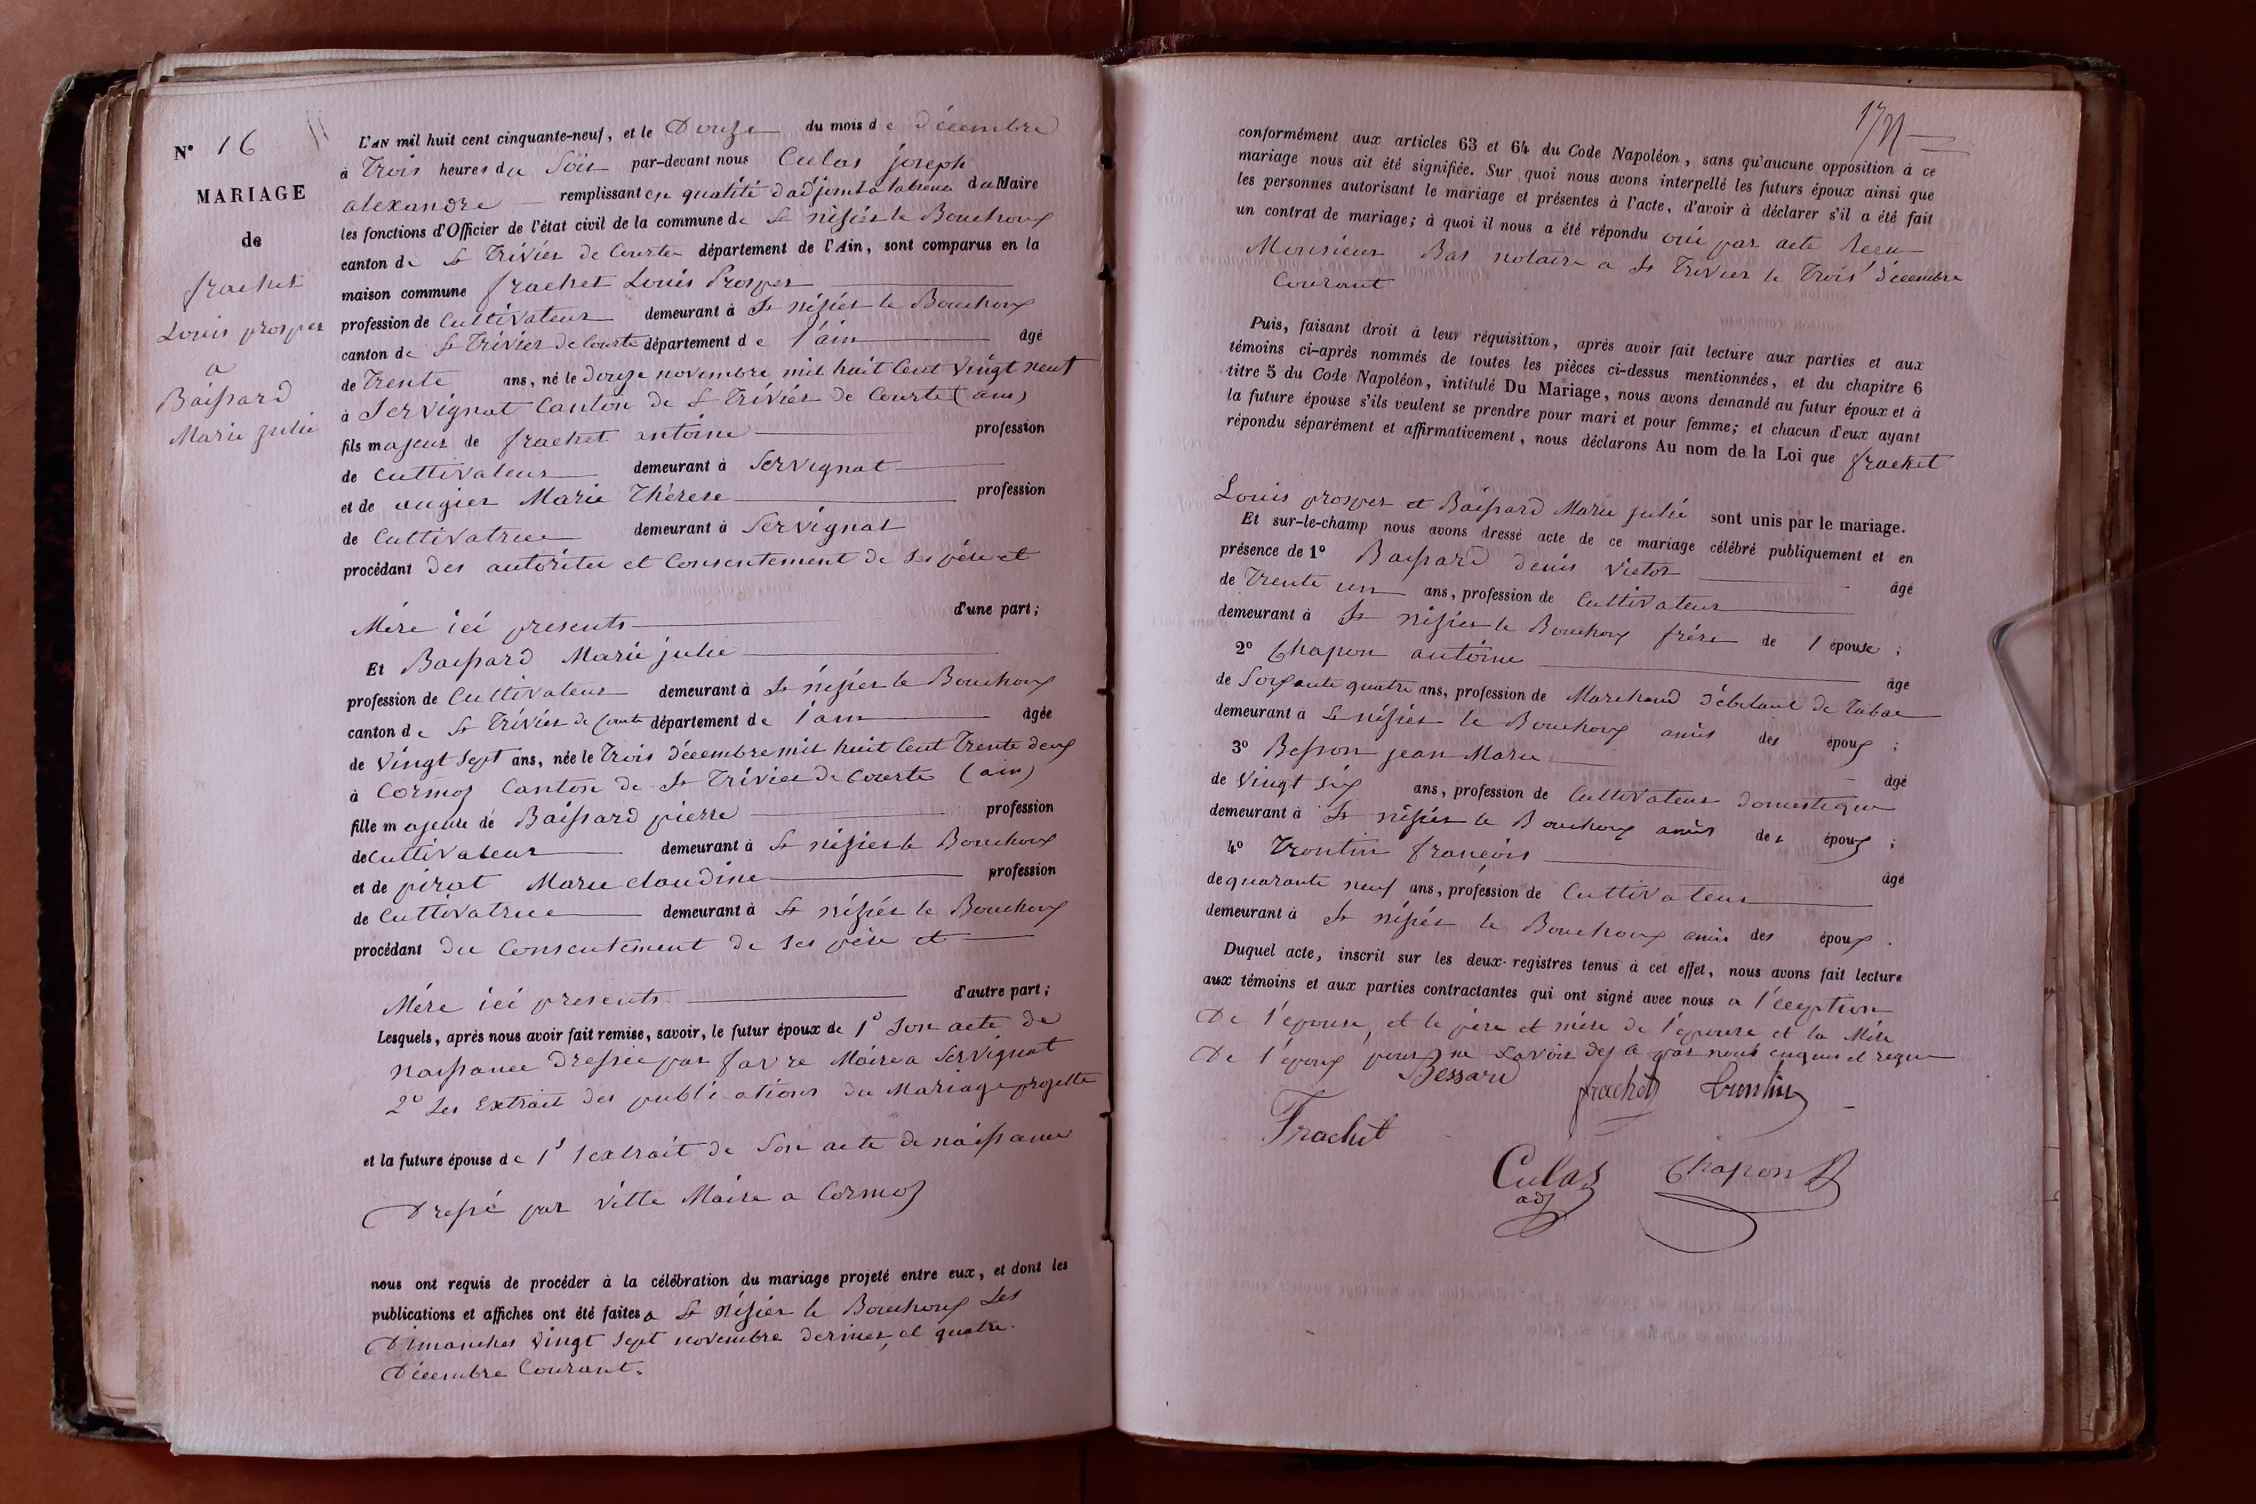 N° 16
MARIAGE
de
frachet
Louis prosper
a
Baissard
Marie julie
L'AN mil huit cent cinquante-neuf, et le Douze du mois de décembre
à Trois heures du Soir par-devant nous Culas joseph
alexandre remplissant en qualité d'adjoint a du Maire
les fonctions d'Officier de l'état civil de la commune de St nisiér le Bouchoux
canton de St Trivier de Courte département de l'Ain, sont comparus en la
maison commune frachet Louis Prosper
profession de Cultivateur demeurant à St nisiér le Bouchoux
canton de St Trivier de Courte département de l'ain âgé
de Trente ans, né le douze novembre mil huit Cent Vingt neuf
à Servignat Canton de St Trivier de Courte (ain)
fils majeur de frachet antoine profession
de Cultivateur demeurant à Servignat
et de augier Marie Thérese profession
de Cultivatrice demeurant à Servignat
procédant des autorités et Consentement de ses pére et
Mére ici presents d'une part;
Et Baissard Marie julie
profession de Cultivateur demeurant à St nisiér le Bouchoux
canton de St Trivier de Courte département de l'ain âgée
de Vingt Sept ans, née le Trois décembre mil huit Cent Trente deux
à Cormoz Canton de St Trivier de Courte (ain)
fille majeure de Baissard pierre profession
de Cultivateur demeurant à St nisier le Bouchoux
et de pirat Marie claudine profession
de Cultivatrice demeurant à St nisiér le Bouchoux
procédant du Consentement de ses pére et
Mére ici presents d'autre part;
Lesquels, après nous avoir fait remise, savoir, le futur époux de 1° Son acte de
naissance Dressée par favre Maire a Servignat
2° Les Extrait des publications du Mariage projetté
et la future épouse de 1° l'extrait de Son acte de naissance
Dressé par Vitte Maire a Cormoz
nous ont requis de procéder à la célébration du mariage projeté entre eux, et dont les
publications et affiches ont été faites a St Nisier le Bouchoux Les
Dimanches Vingt Sept novembre dernier, et quatre
Décembre Courant.
171
conformément aux articles 63 et 64 du Code Napoléon, sans qu'aucune opposition à ce
mariage nous ait été signifiée. Sur quoi nous avons interpellé les futurs époux ainsi que
les personnes autorisant le mariage et présentes à l'acte, d'avoir à déclarer s'il a été fait
un contrat de mariage; à quoi il nous a été répondu oui par acte Recu
Monsieur Bas notaire a St Trivier le Trois décembre
Courant
Puis, faisant droit à leur réquisition, après avoir fait lecture aux parties et aux
témoins ci-après nommés de toutes les pièces ci-dessus mentionnées, et du chapitre 6
titre 5 du Code Napoléon, intitulé Du Mariage, nous avons demandé au futur époux et à
la future épouse s'ils veulent se prendre pour mari et pour femme; et chacun d'eux ayant
répondu séparément et affirmativement, nous déclarons Au nom de la Loi que frachet
Louis prosper et Baissard Marie julie sont unis par le mariage.
Et sur-le-champ nous avons dressé acte de ce mariage célébré publiquement et en
présence de 1° Baissard denis Victor âgé
de Trente un ans, profession de Cultivateur
demeurant à St nisier le Bouchoux frére de l'épouse;
2° Chapon antoine âgé
de Soixante quatre ans, profession de Marchand débitant de Tabac
demeurant à St nisier le Bouchoux amis des époux;
3° Besson jean Marie âgé
de Vingt six ans, profession de Cultivateur domestique
demeurant à St nisier le Bouchoux amis des époux;
4° Trontin françois âgé
de quarante neuf ans, profession de Cultivateur
demeurant à St nisiér le Bouchoux amis des époux.
Duquel acte, inscrit sur les deux registres tenus à cet effet, nous avons fait lecture
aux témoins et aux parties contractantes qui ont signé avec nous a l'éception
De l'épouse, et le pére et mére de l'épouse et la Mére
De l'époux pour ne savoir de ce par nous enquis et requis
Bessard frachet trontin
Frachet
Culas Chapon
adj